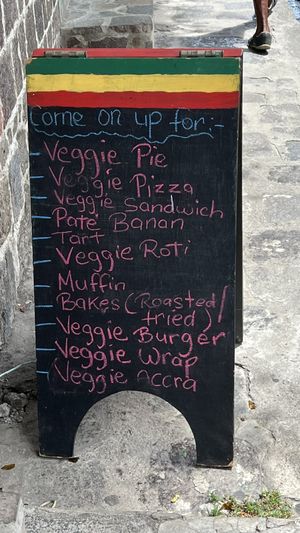 Come on up for:-
Veggie Pie
Veggie Pizza
Veggie Sandwich
Pate Banan
Tart
Veggie Roti
Muffin
Bakes (Roasted/
fried)
Veggie Burger
Veggie Wrap
Veggie Accra